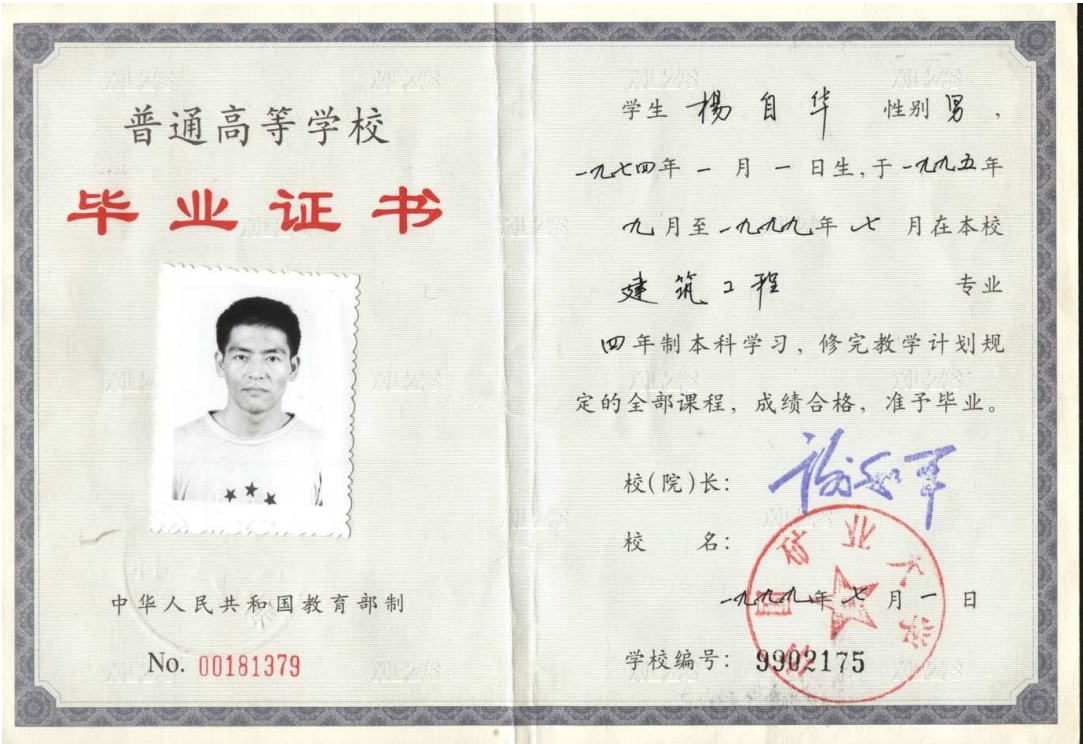 普通高等学校
毕业证书
中华人民共和国教育部制
No. 00181379
学生 楊自华 性别 男,
一九七四年 一 月 一 日生,于一九九五年
九月至一九九九年 七 月在本校
建筑工程 专业
四年制本科学习, 修完教学计划规
定的全部课程, 成绩合格, 准予毕业。
校(院)长: 谢和平
校 名: 中国矿业大学
一九九九年七月一日
学校编号: 9902175